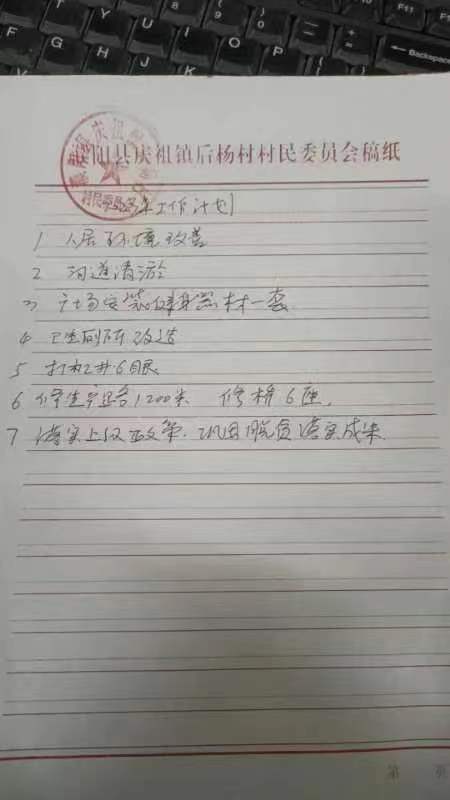 F11
Backspace
阳县庆祖镇后杨村村民委员会稿纸
年工作计划
1 人居环境改善
2 沟道清淤
3 广场安装健身器材一套
4 卫生厕所改造
5 打机井6眼
6 修生产路1200米 修桥6座.
7 落实上级政策.巩固脱贫落实成果.
第 页